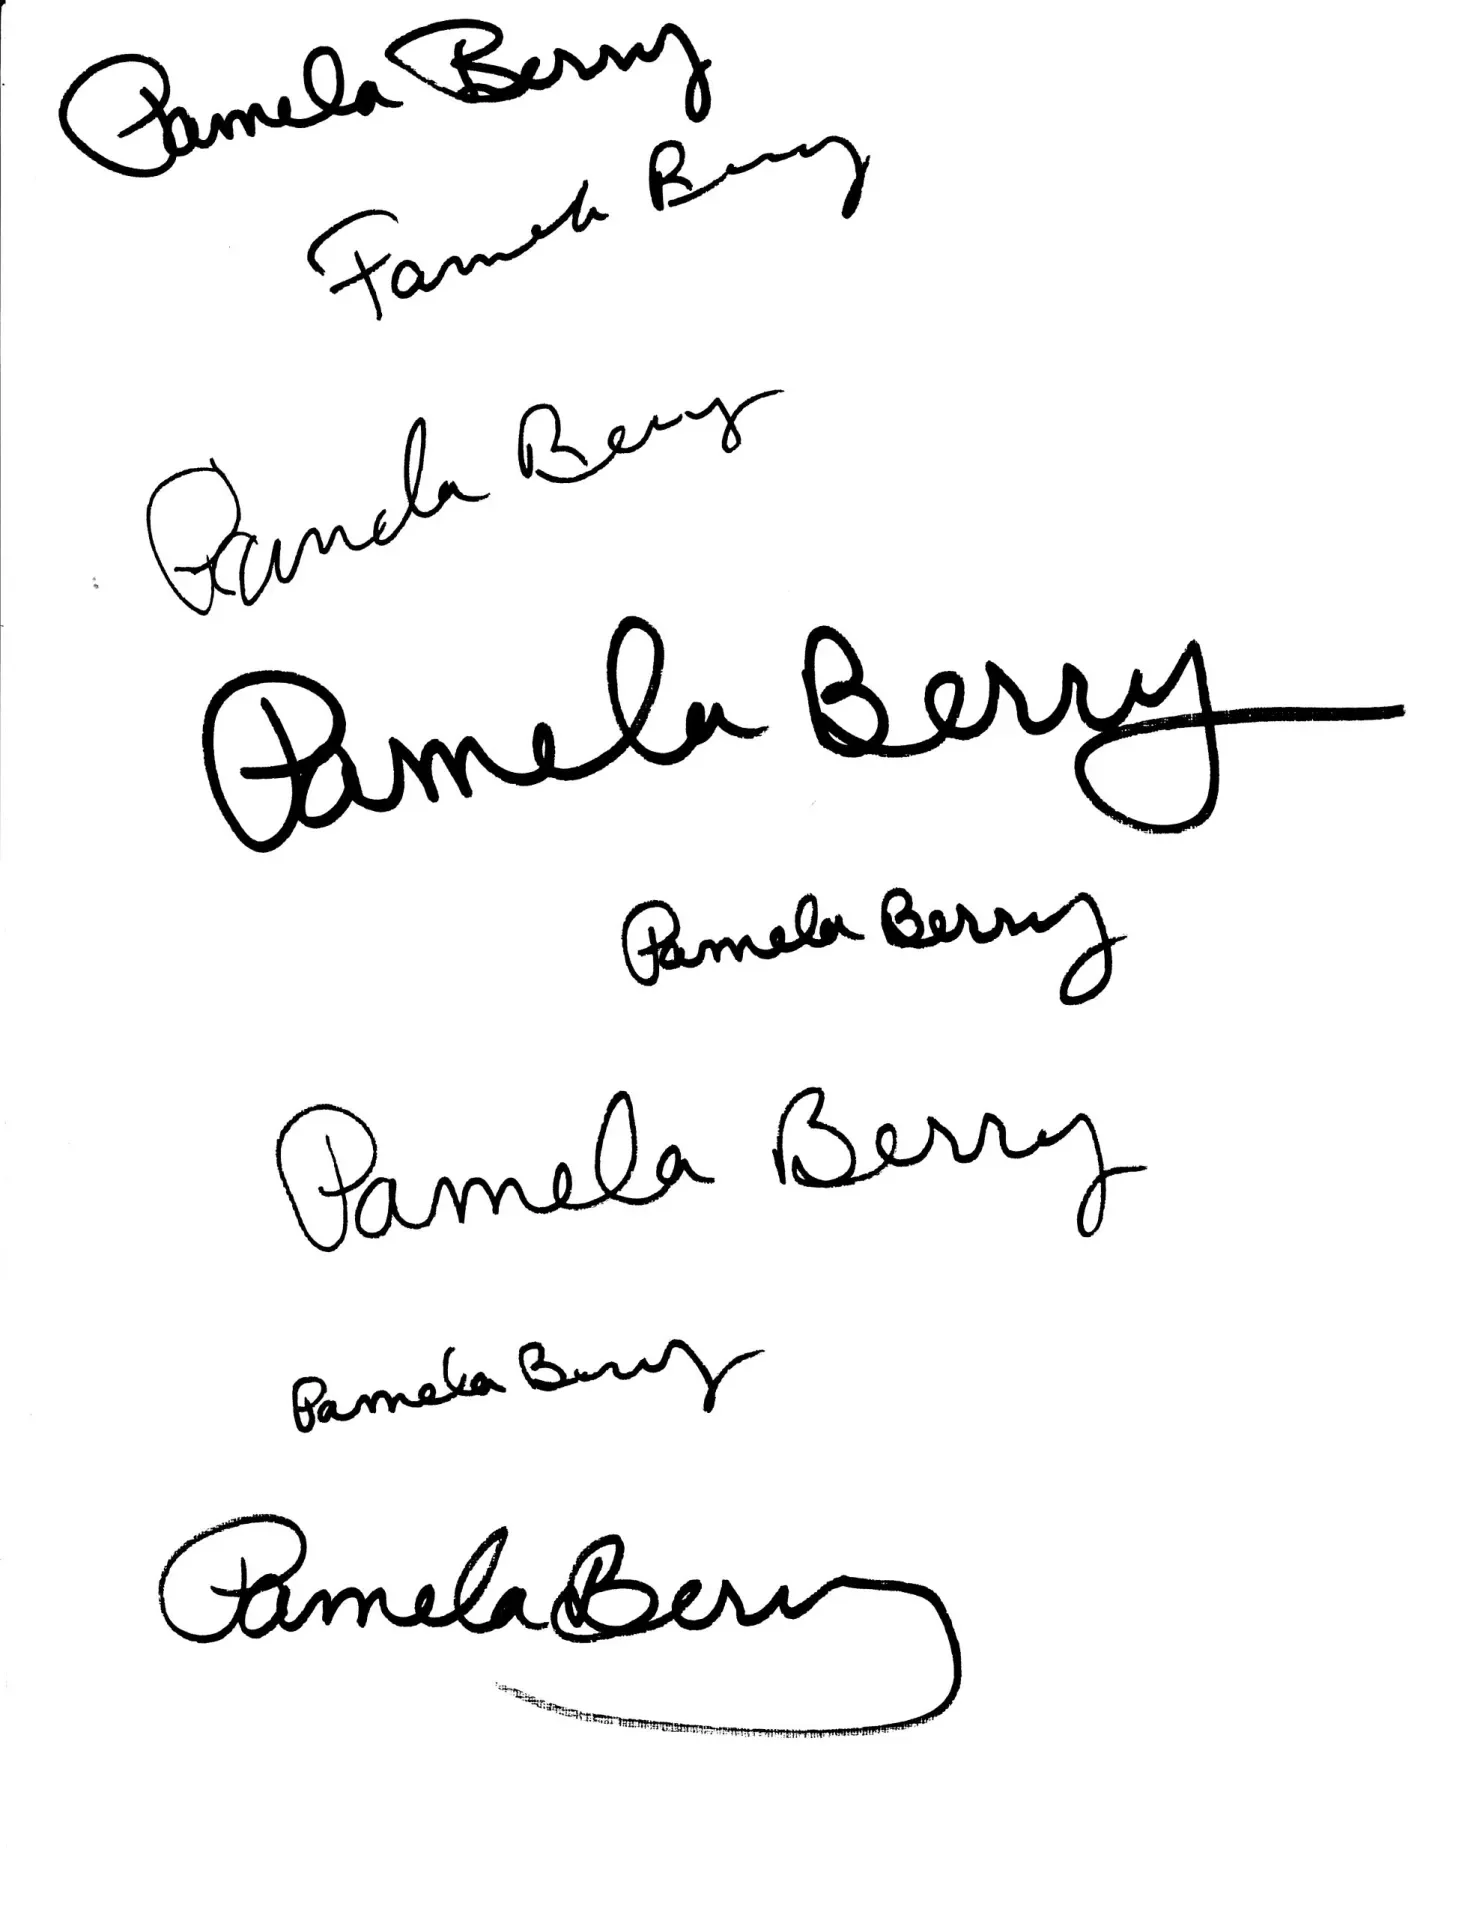 Pamela Berry
Pamela Berry
Pamela Berry
Pamela Berry
Pamela Berry
Pamela Berry
Pamela Berry
Pamela Berry